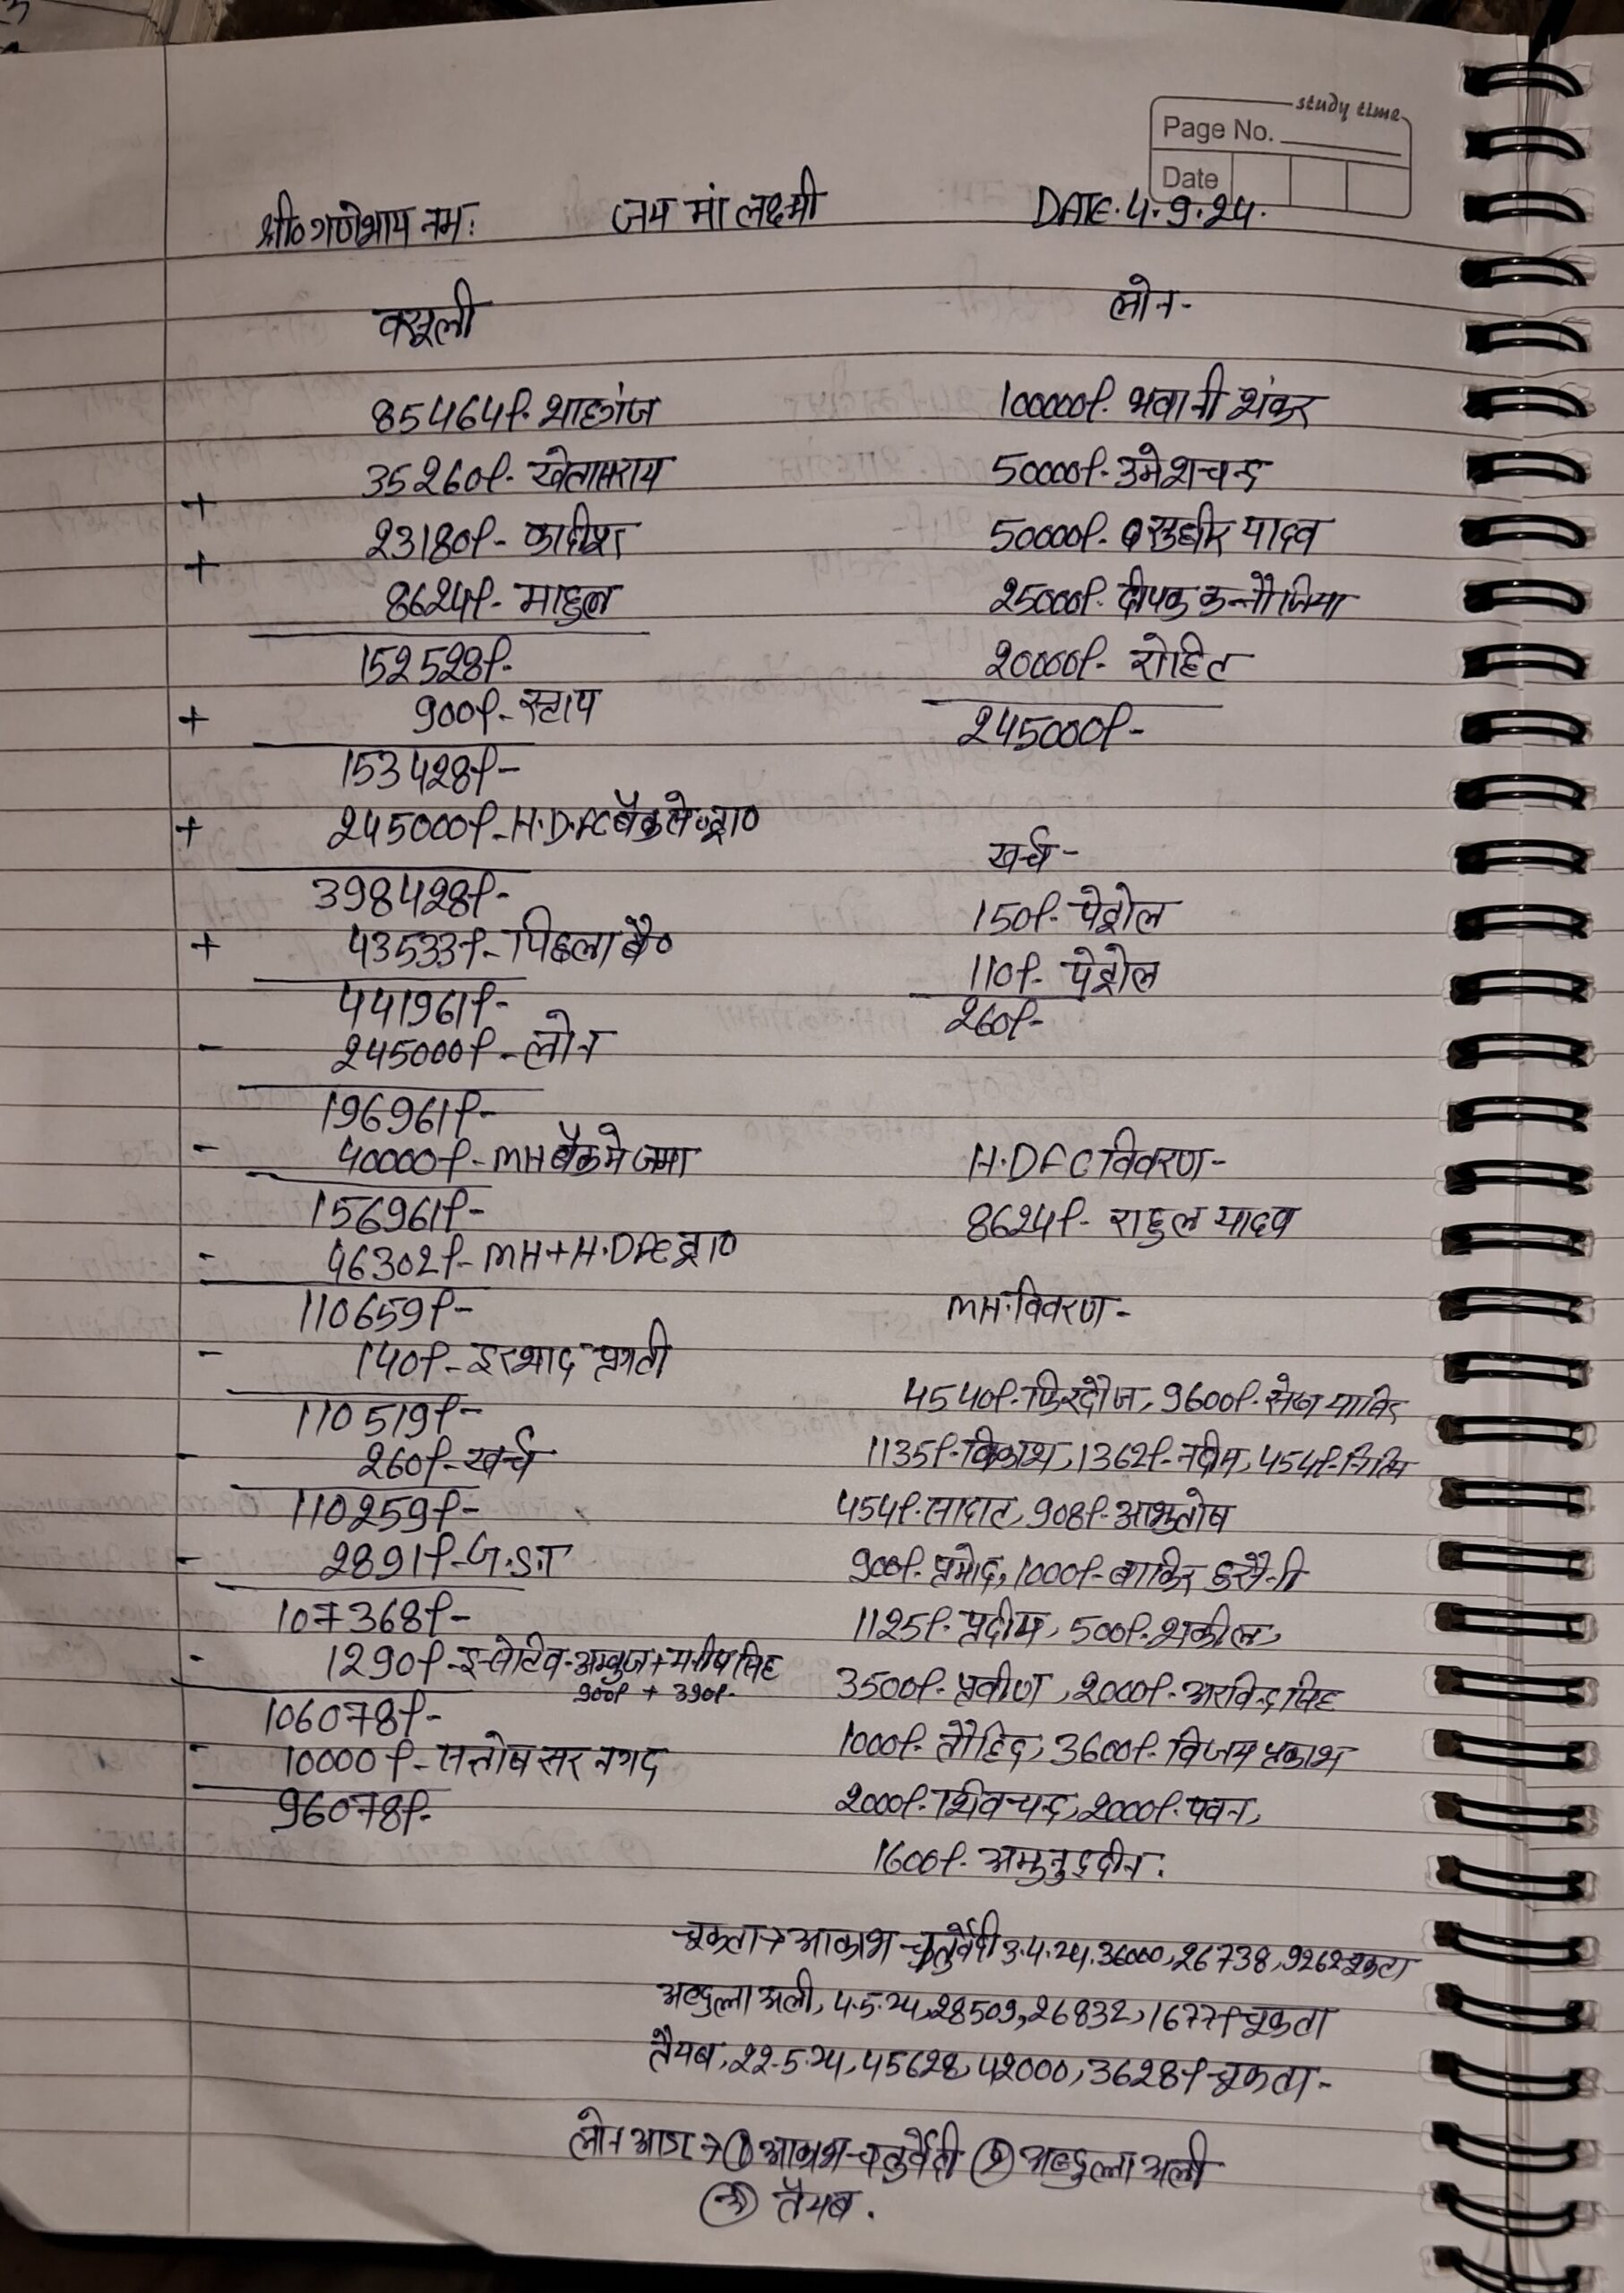 study time
Page No.
Date
श्री० गणेशाय नमः जय मां लक्ष्मी DATE. 4.9.24.
वसूली
85464/- शाहगंज
35260/- खेतासराय
+
23180/- फादीश
+
8624/- माहुल
152528/-
+ 900/- स्टाप
153428/-
+ 245000/- H.D.FC बैंक से ट्रा०
398428/-
+ 43533/- पिछला बै०
441961/-
- 245000/- लोन
196961/-
- 40000/- MH बैंक मे जमा
156961/-
- 46302/- MH+H.DFC ट्रा०
110659/-
- 140/- इरशाद प्रगती
110519/-
- 260/- खर्च
110259/-
- 2891/- G.S.T
107368/-
- 1290/- इन्सेटिव-अम्बुज+मनीष सिंह
900/- + 390/-
106078/-
- 10000/- सन्तोष सर नगद
96078/-
लोन-
100000/- भवानी शंकर
50000/- उमेशचन्द्र
50000/- सुधीर यादव
25000/- दीपक कन्नौजिया
20000/- रोहित
245000/-
खर्च-
150/- पेट्रोल
110/- पेट्रोल
260/-
H.DFC विवरण-
8624/- राहुल यादव
MH. विवरण-
4540/- फिरदौज, 9600/- सेख
1135/- विकाश, 1362/- नदीम, 454/-
454/- सादाट, 908/- आशुतोष
900/- प्रमोद, 1000/- बाकिर हुसैनी
1125/- प्रदीप, 500/- शकील,
3500/- प्रवीण, 2000/- अरविन्द सिंह
1000/- तौहिद, 3600/- विजय प्रकाश
2000/- शिवचन्द, 2000/- पवन,
1600/- अमुनुद्दीन.
चूकता→ आकाश चतुर्वेदी 3.4.24. 36000, 26738, 9262 चूकता
अब्दुल्ला अली, 4.5.24, 28509, 26832, 1677/- चूकता
तैयब, 22.5.24, 45628, 42000, 3628/- चूकता-
लोन आउट→ ① आकाश चतुर्वेदी ② अब्दुल्ला अली
③ तैयब.